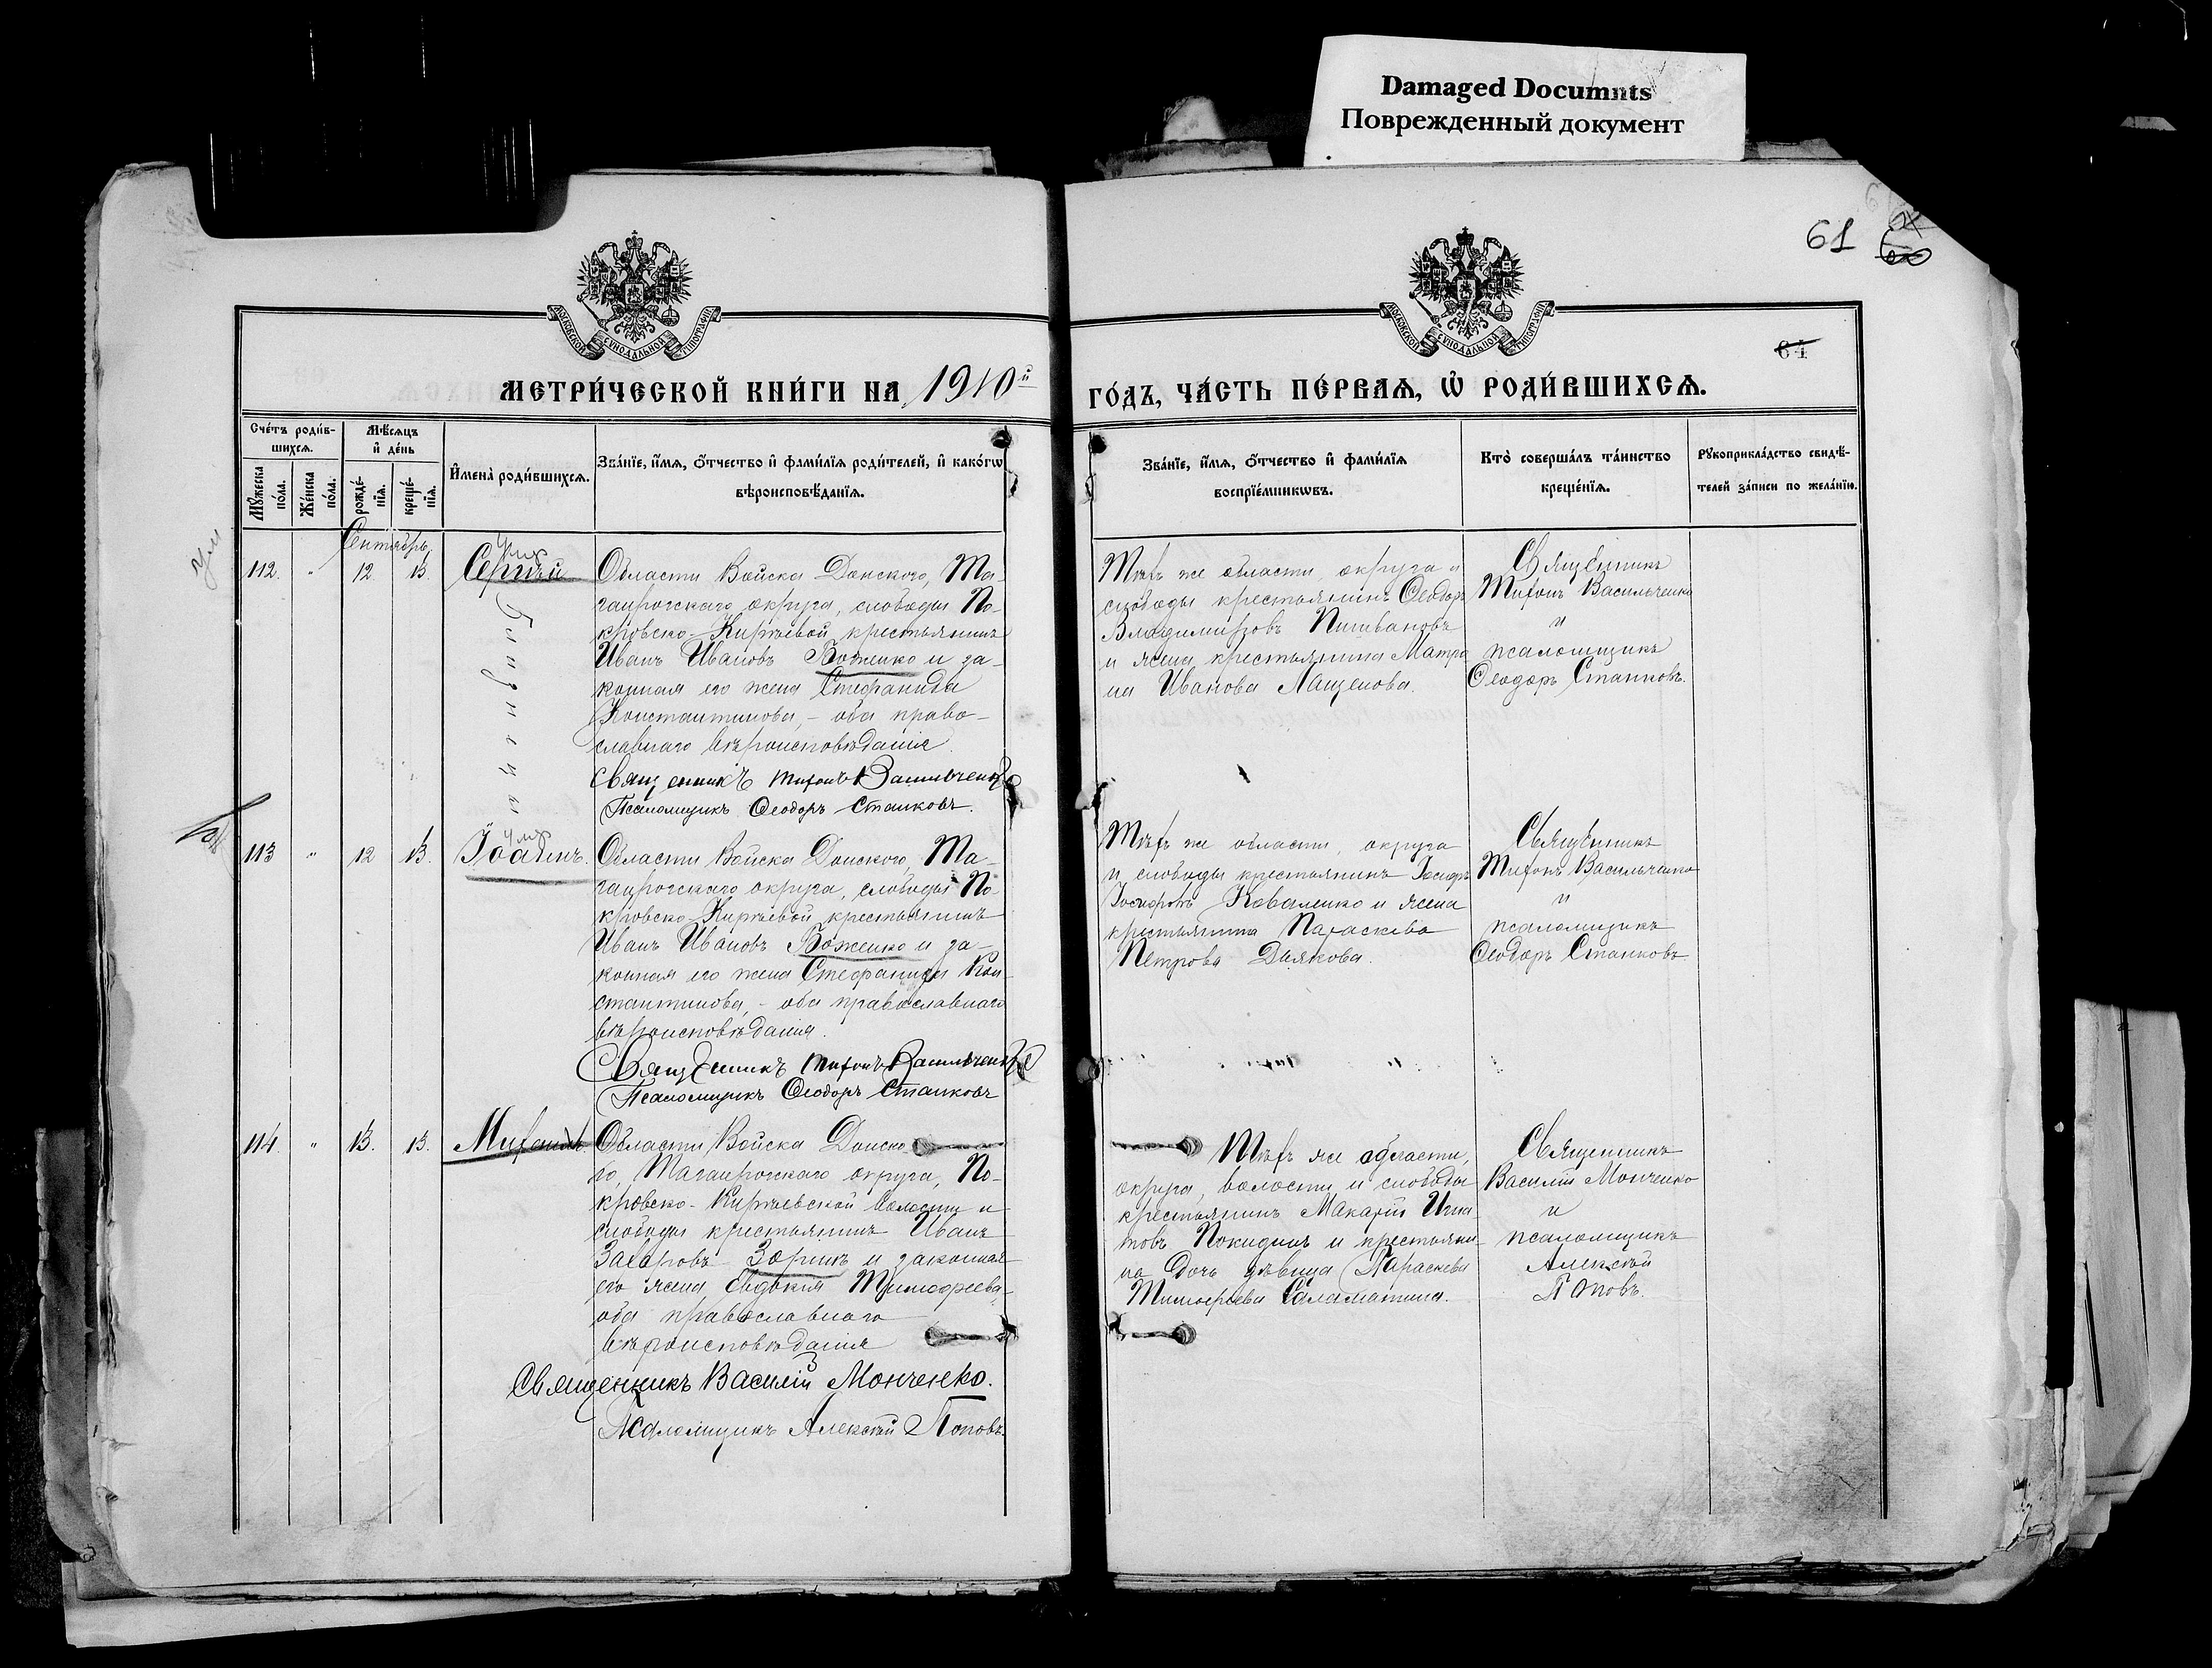 Damaged Documnts
Поврежденный документ
61
60
64
МОСКОВСКОЙ СУНОДАЛЬНОЙ ТИПОГРАФІИ
МОСКОВСКОЙ СУНОДАЛЬНОЙ ТИПОГРАФІИ
МЕТРИ́ЧЕСКОЙ КНИ́ГИ НА 1910й
ГО́ДЪ, ЧА́СТЬ ПЕ́РВАЯ, Ѡ҆ РОДИ́ВШИХСЯ.
Сче́тъ роди́в-
шихся.
Мꙋ́жеска
по́ла.
Же́нска
по́ла.
Мѣ́сяцъ
и҆ де́нь
рожде́-
нїя.
креще́-
нїя.
И҆мена̀ роди́вшихся.
Зва́нїе, и҆́мя, ѻ҆́тчество и҆ фами́лїя роди́телей, и҆ како́гѡ
вѣроисповѣ́данїя.
Зва́нїе, и҆́мя, ѻ҆́тчество и҆ фами́лїя
воспрїе́мникѡвъ.
Кто̀ соверша́лъ та́инство
креще́нїя.
Рꙋкоприкла́дство свидѣ́-
телей за́писи по жела́нїю.
Сентябрь
ум
112. " 12. 13.
Сергѣй
Близнецы
Области Войска Донского, Та-
ганрогскаго округа, слободы По-
кровско-Кирѣевой крестьянинъ
Иванъ Ивановъ Боженко и за-
конная его жена Стефанида
Константинова, – оба право-
славнаго вѣроисповѣданія.
Священникъ Тихонъ Васильченко
Псаломщикъ Ѳеодоръ Станковъ.
Той же области, округа и
слободы крестьянинъ Ѳеодоръ
Владиміровъ Пишвановъ
и жена крестьянина Матро
на Иванова Лащенова.
Священникъ
Тихонъ Васильченко
и
псаломщикъ
Ѳеодоръ Станковъ.
113 " 12 13.
умр
Іоаннъ.
Области Войска Донского, Та-
ганрогскаго округа, слободы По-
кровско-Кирѣевой, крестьянинъ
Иванъ Ивановъ Боженко и за-
конная его жена Стефанида Кон-
стантинова, – оба православнаго
вѣроисповѣданія.
Священникъ Тихонъ Васильченко
Псаломщикъ Ѳеодоръ Станковъ
Той же области, округа
и слободы крестьянинъ Іосифъ
Іосифовъ Коваленко и жена
крестьянина Параскева
Петрова Дьякова.
Священникъ
Тихонъ Васильченко
и
псаломщикъ
Ѳеодоръ Станковъ
114. " 13. 13.
Области Войска Донско-
го, Таганрогскаго округа, По-
кровско-Кирѣевской волости и
слободы крестьянинъ Иванъ
Захаровъ Зоринъ и законная
его жена Евдокія Тимофеева –
оба православнаго
вѣроисповѣданія
Священникъ Василій Монченко.
Псаломщикъ Алексѣй Поповъ.
Той же области,
округа, волости и слободы
крестьянинъ Макарій Игна-
товъ Покидинъ и крестьяни-
на дочь дѣвица Параскева
Тимофеева Саламатина.
Священникъ
Василій Монченко
и
псаломщикъ
Алексѣй
Поповъ.